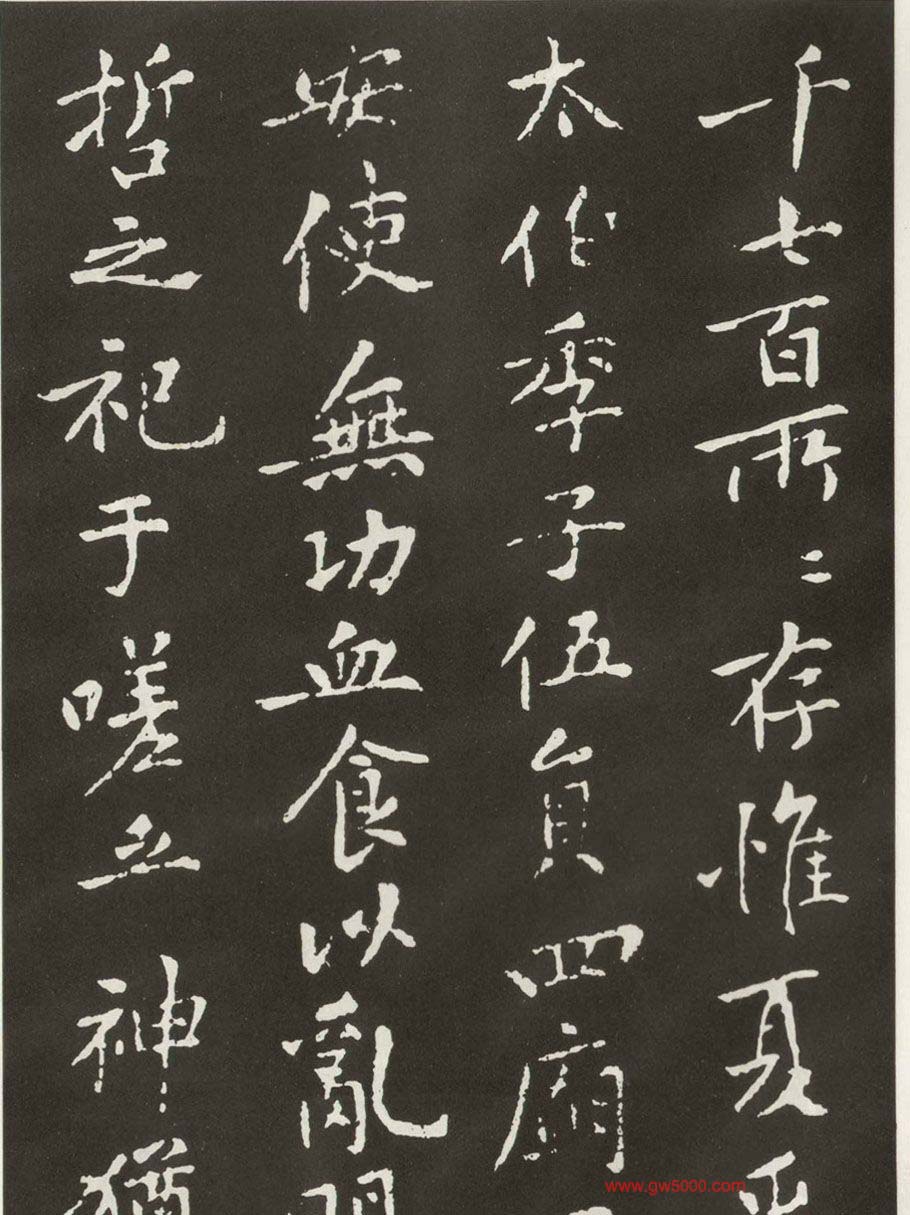 千七百所々存惟夏禹
太伯季子伍員四廟
安使無功血食以亂明
哲之祀于嗟乎神猶
www.gw5000.com